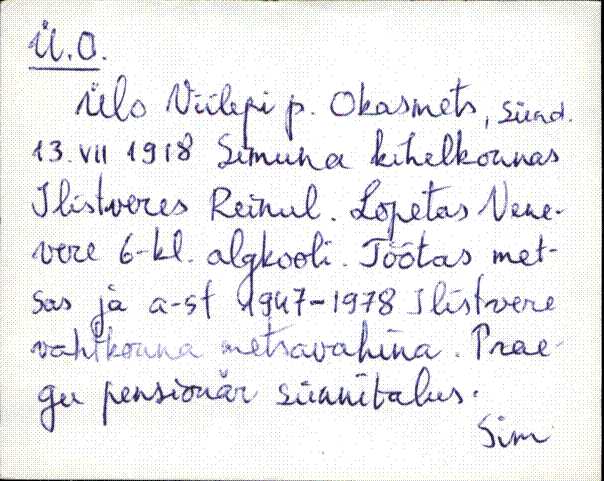 Ü.O.
Ülo Viilepi p. Okasmets, sünd.
13.VII 1918 Simuna kihelkonnas
Ilistveres Reinul. Lõpetas Vene-
vere 6-kl. algkooli. Töötas met-
sas ja a-st 1947-1978 Ilistvere
vahtkonna metsavahina. Prae-
gu pensionär sünnitalus.
Sim